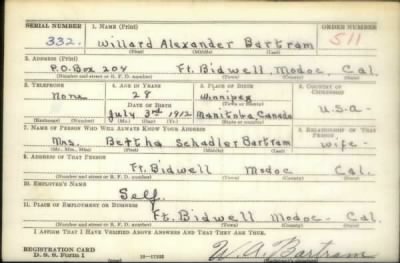 SERIAL NUMBER 1. NAME (Print) ORDER NUMBER
332. Willard Alexander Bartram 511
(First) (Middle) (Last)
2. ADDRESS (Print)
P.O. Box 204 Ft. Bidwell Modoc, Cal.
(Number and street or R. F. D. number) (Town) (County) (State)
3. TELEPHONE 4. AGE IN YEARS 5. PLACE OF BIRTH 6. COUNTRY OF CITIZENSHIP
None 28 Winnipeg
(Town or county)
DATE OF BIRTH U.S.A-
July 3rd 1912 Manitoba Canada
(Exchange) (Number) (Mo.) (Day) (Yr.) (State or country)
7. NAME OF PERSON WHO WILL ALWAYS KNOW YOUR ADDRESS 8. RELATIONSHIP OF THAT PERSON
Mrs. Bertha Schadler Bartram wife-
(Mr., Mrs., Miss) (First) (Middle) (Last)
9. ADDRESS OF THAT PERSON
Ft. Bidwell Modoc Cal.
(Number and street or R. F. D. number) (Town) (County) (State)
10. EMPLOYER'S NAME
Self.
11. PLACE OF EMPLOYMENT OR BUSINESS
Ft. Bidwell Modoc- Cal
(Number and street or R. F. D. number) (Town) (County) (State)
I AFFIRM THAT I HAVE VERIFIED ABOVE ANSWERS AND THAT THEY ARE TRUE.
REGISTRATION CARD
D. S. S. Form 1 16-17105 W. A. Bartram
(Registrant's signature)